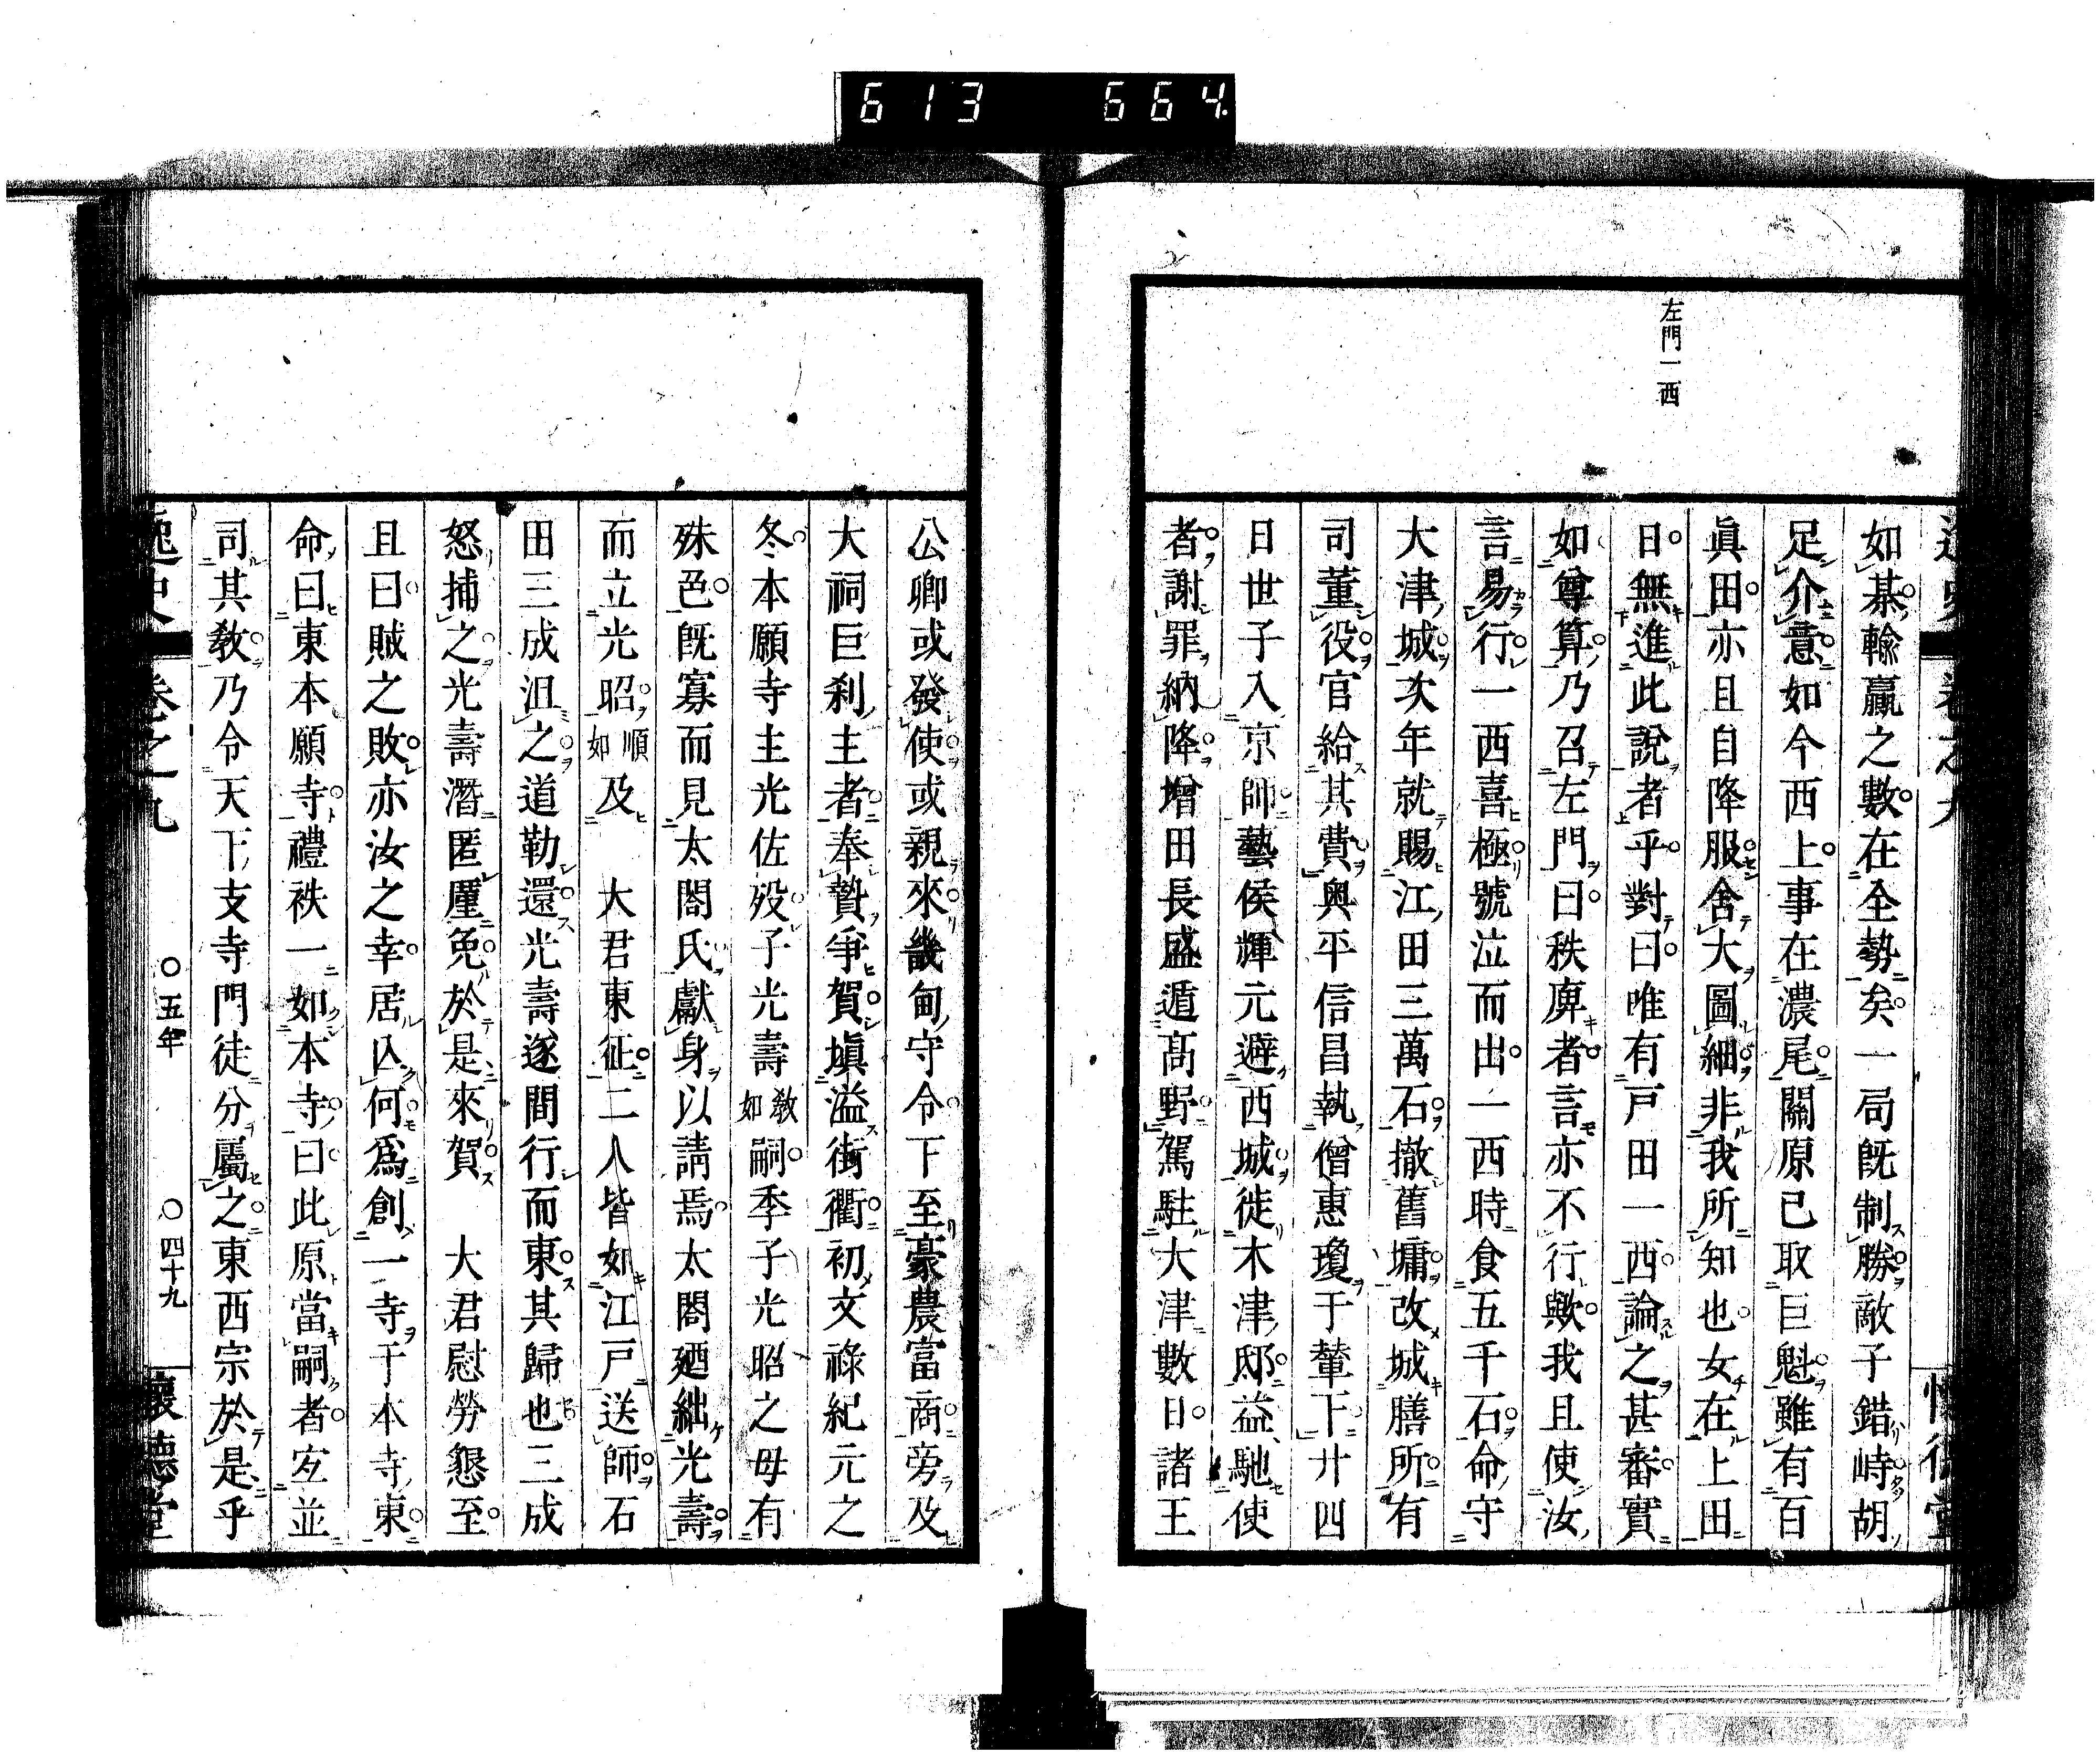 613 664
左門一西
如棊輸贏之數在全勢矣一局旣制勝敵子錯峙胡
足介意如今西上事在濃尾關原已取巨魁雖有百
眞田亦且自降服舍大圖細非我所知也女在上田
日無進此說者乎對曰唯有戸田一西論之甚審實
如尊算乃召左門曰秩庳者言亦不行歟我且使汝
言易行一西喜極號泣而出一西時食五千石命守
大津城次年就賜江田三萬石撤舊墉改城膳所有
司董役官給其費奧平信昌執僧惠瓊于輦下廿四
日世子入京師藝侯輝元避西城徙木津邸益馳使
者謝罪納降增田長盛遁髙野駕駐大津數日諸王
公卿或發使或親來畿甸守令下至豪農富商旁及
大祠巨刹主者奉贄爭賀塡溢街衢初文祿紀元之
冬本願寺主光佐歿子光壽敎如嗣季子光昭之母有
殊色旣寡而見太閤氏獻身以請焉太閤廼絀光壽
而立光昭順如及 大君東征二人皆如江戸送師石
田三成沮之道勒還光壽遂間行而東其歸也三成
怒捕之光壽潛匿廑免於是來賀 大君慰勞懇至
且曰賊之敗亦汝之幸居亾何爲創一寺于本寺東
命曰東本願寺禮秩一如本寺曰此原當嗣者宐並
司其敎乃令天下支寺門徒分屬之東西宗於是乎
逸史 卷之九 ○五年 ○四十九 懷德堂